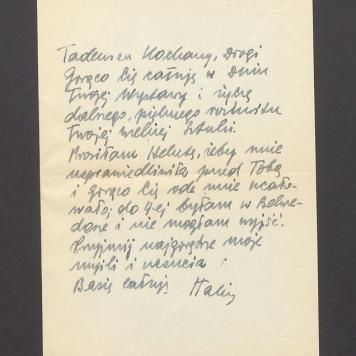 Tadeuszu Kochany, Drogi
Gorąco Cię całuję w Dniu
Twojej Wystawy i życzę
dalszego, pięknego rozkwitu
Twojej wielkiej Sztuki.
Prosiłam Helutę, żeby mnie
usprawiedliwiła przed Tobą
i gorąco Cię ode mnie ucało-
wała; do 4ej byłam w Belwe-
derze i nie mogłam wyjść!
Przyjmij najgorętsze moje
myśli i uczucia!
Basię całuję